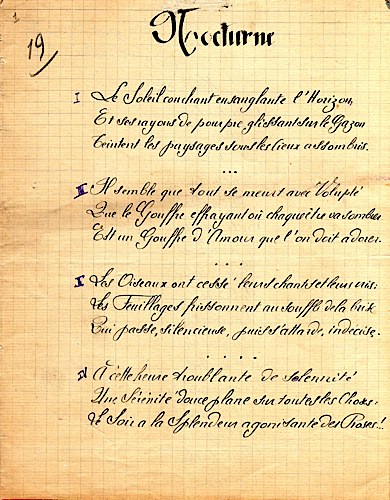 1
19
Nocturne
I Le Soleil couchant ensanglante l'Horizon
Et ses rayons de pourpre, glissant sur le Gazon
Teintent les paysages sous les cieux assombris.
...
III Il semble que tout se meurt avec Volupté
Que le Gouffre effrayant où chaque être va sombrer
Est un Gouffre d'Amour que l'on doit adorer.
....
II Les Oiseaux ont cessé leurs chants et leurs cris:
Les Feuillages frissonnent au souffle de la brise
Qui passe, silencieuse, puis s'attarde, indécise.
....
IV A cette heure troublante de Solennité
Une Sérénité douce plane sur toutes les Choses.
Le Soir a la Splendeur agonisante des Roses!..